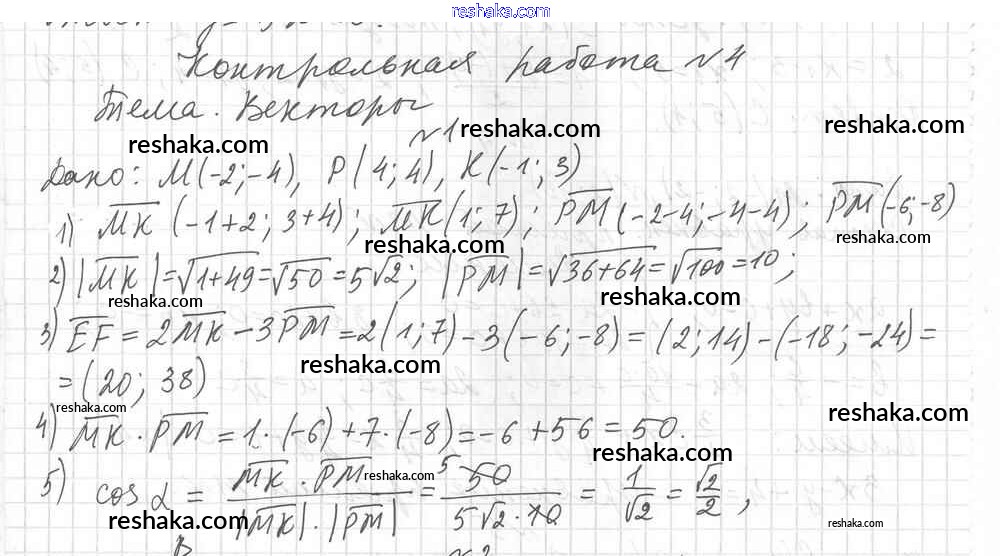 reshaka.com
Контрольная работа №4
Тема. Векторы
№1
reshaka.com
reshaka.com
reshaka.com
Дано: M(-2;-4), P(4;4), K(-1;3)
1) MK (-1+2; 3+4); MK (1;7); PM (-2-4;-4-4); PM (-6;-8)
reshaka.com
reshaka.com
2) |MK|=√1+49=√50=5√2; |PM|=√36+64=√100=10;
reshaka.com
reshaka.com
3) EF = 2MK - 3PM = 2(1;7) - 3(-6;-8) = (2;14) - (-18;-24) =
= (20; 38)
reshaka.com
reshaka.com
reshaka.com
4) MK · PM = 1·(-6) + 7·(-8) = -6 + 56 = 50.
reshaka.com
reshaka.com
5) cos α = MK · PM / |MK| · |PM| = 5 50 / 5√2 · 10 = 1/√2 = √2/2,
reshaka.com
reshaka.com